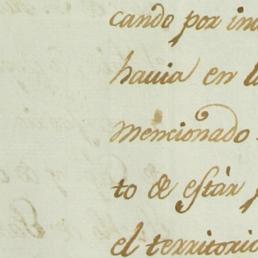 cando por
havia en
mencionado
to de estàr
el territorio